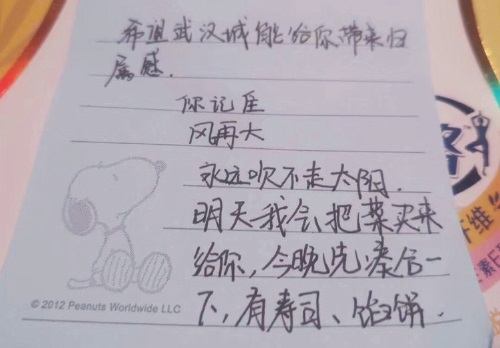 希望武汉城能给你带来归
属感.
你记住
风再大
永远吹不走太阳.
明天我会把菜买来
给你,今晚先凑合一
下,有寿司、馅饼.
© 2012 Peanuts Worldwide LLC
纤维
素E